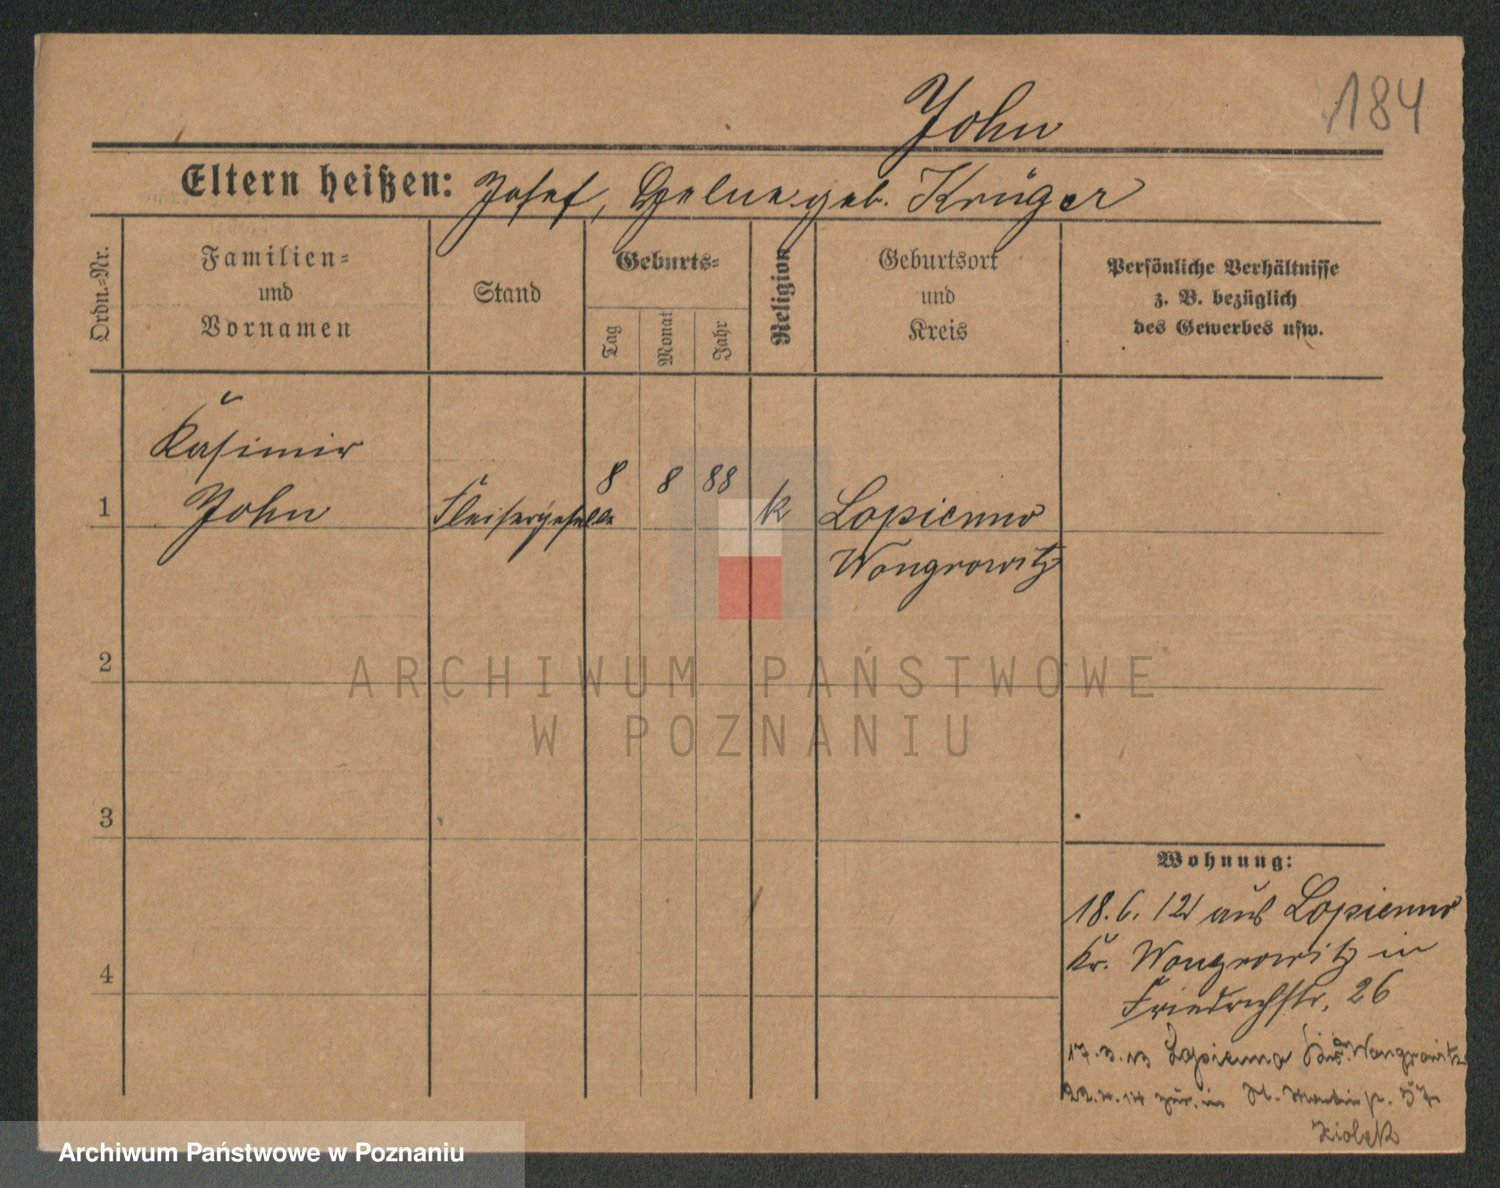 John
184
Eltern heißen: Josef, Helene geb. Krüger
Ordn.-Nr.
Familien-
und
Vornamen
Stand
Geburts-
Tag
Monat
Jahr
Religion
Geburtsort
und
Kreis
Persönliche Verhältnisse
z. B. bezüglich
des Gewerbes usw.
Kasimir
1 John Fleischergeselle 8 8 88 k Lopienno
Wongrowitz
2
ARCHIWUM PAŃSTWOWE
W POZNANIU
3
Wohnung:
18.6.12 aus Lopienno
4 Kr. Wongrowitz in
Friedrichstr. 26
17.3.13 Lopienno Wongrowitz
14 zur. in St. Martinstr. 57
Archiwum Państwowe w Poznaniu